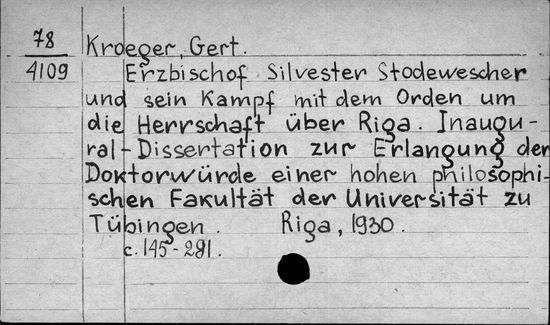 78
4109
Kroeger, Gert.
Erzbischof Silvester Stodewescher
und sein Kampf mit dem Orden um
die Herrschaft über Riga. Inaugu-
ral-Dissertation zur Erlangung der
Doktorwürde einer hohen philosophi-
schen Fakultät der Universität zu
Tübingen. Riga, 1930.
c. 145-281.